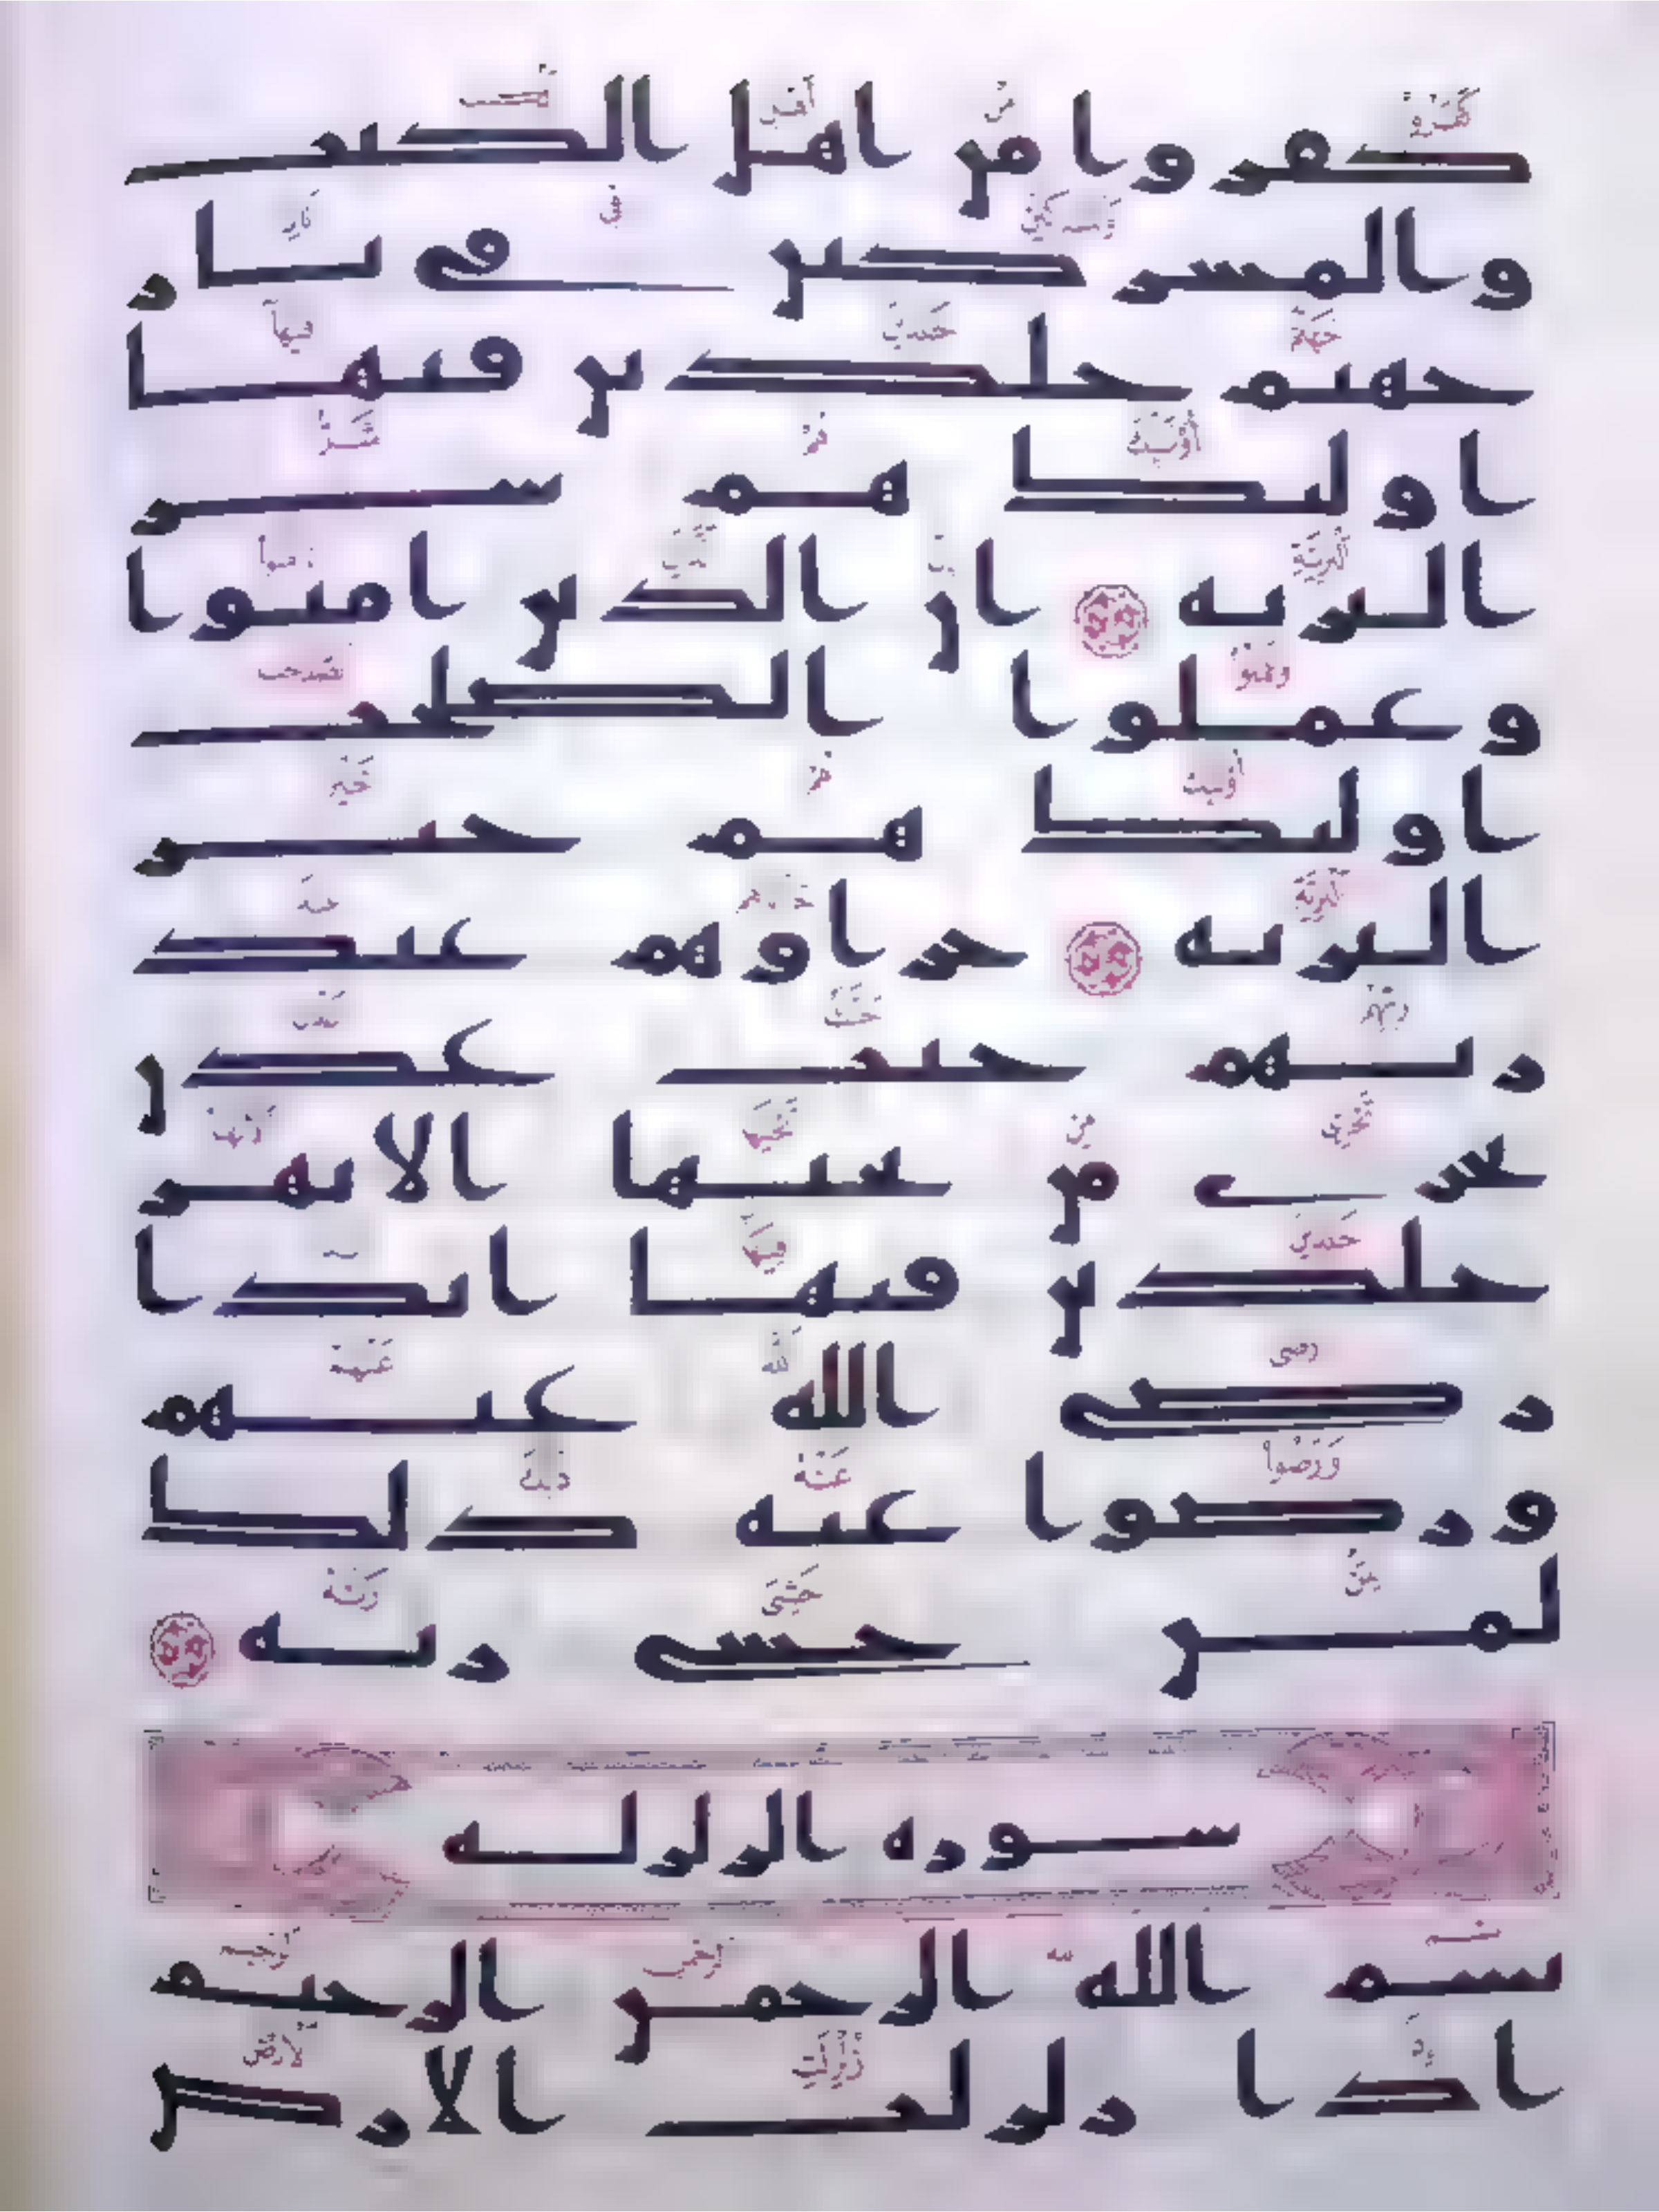 كفروا من اهل الكتب
والمسركين في نار
جهنم خلدين فيها
اوليك هم شر
البرية ان الذين امنوا
وعملوا الصلحت
اوليك هم خير
البرية جزاوهم عند
ربهم جنت عدن
تجري من تحتها الانهر
خلدين فيها ابدا
رضي الله عنهم
ورضوا عنه ذلك
لمن خشي ربه
سورة الزلزلة
بسم الله الرحمن الرحيم
اذا زلزلت الارض